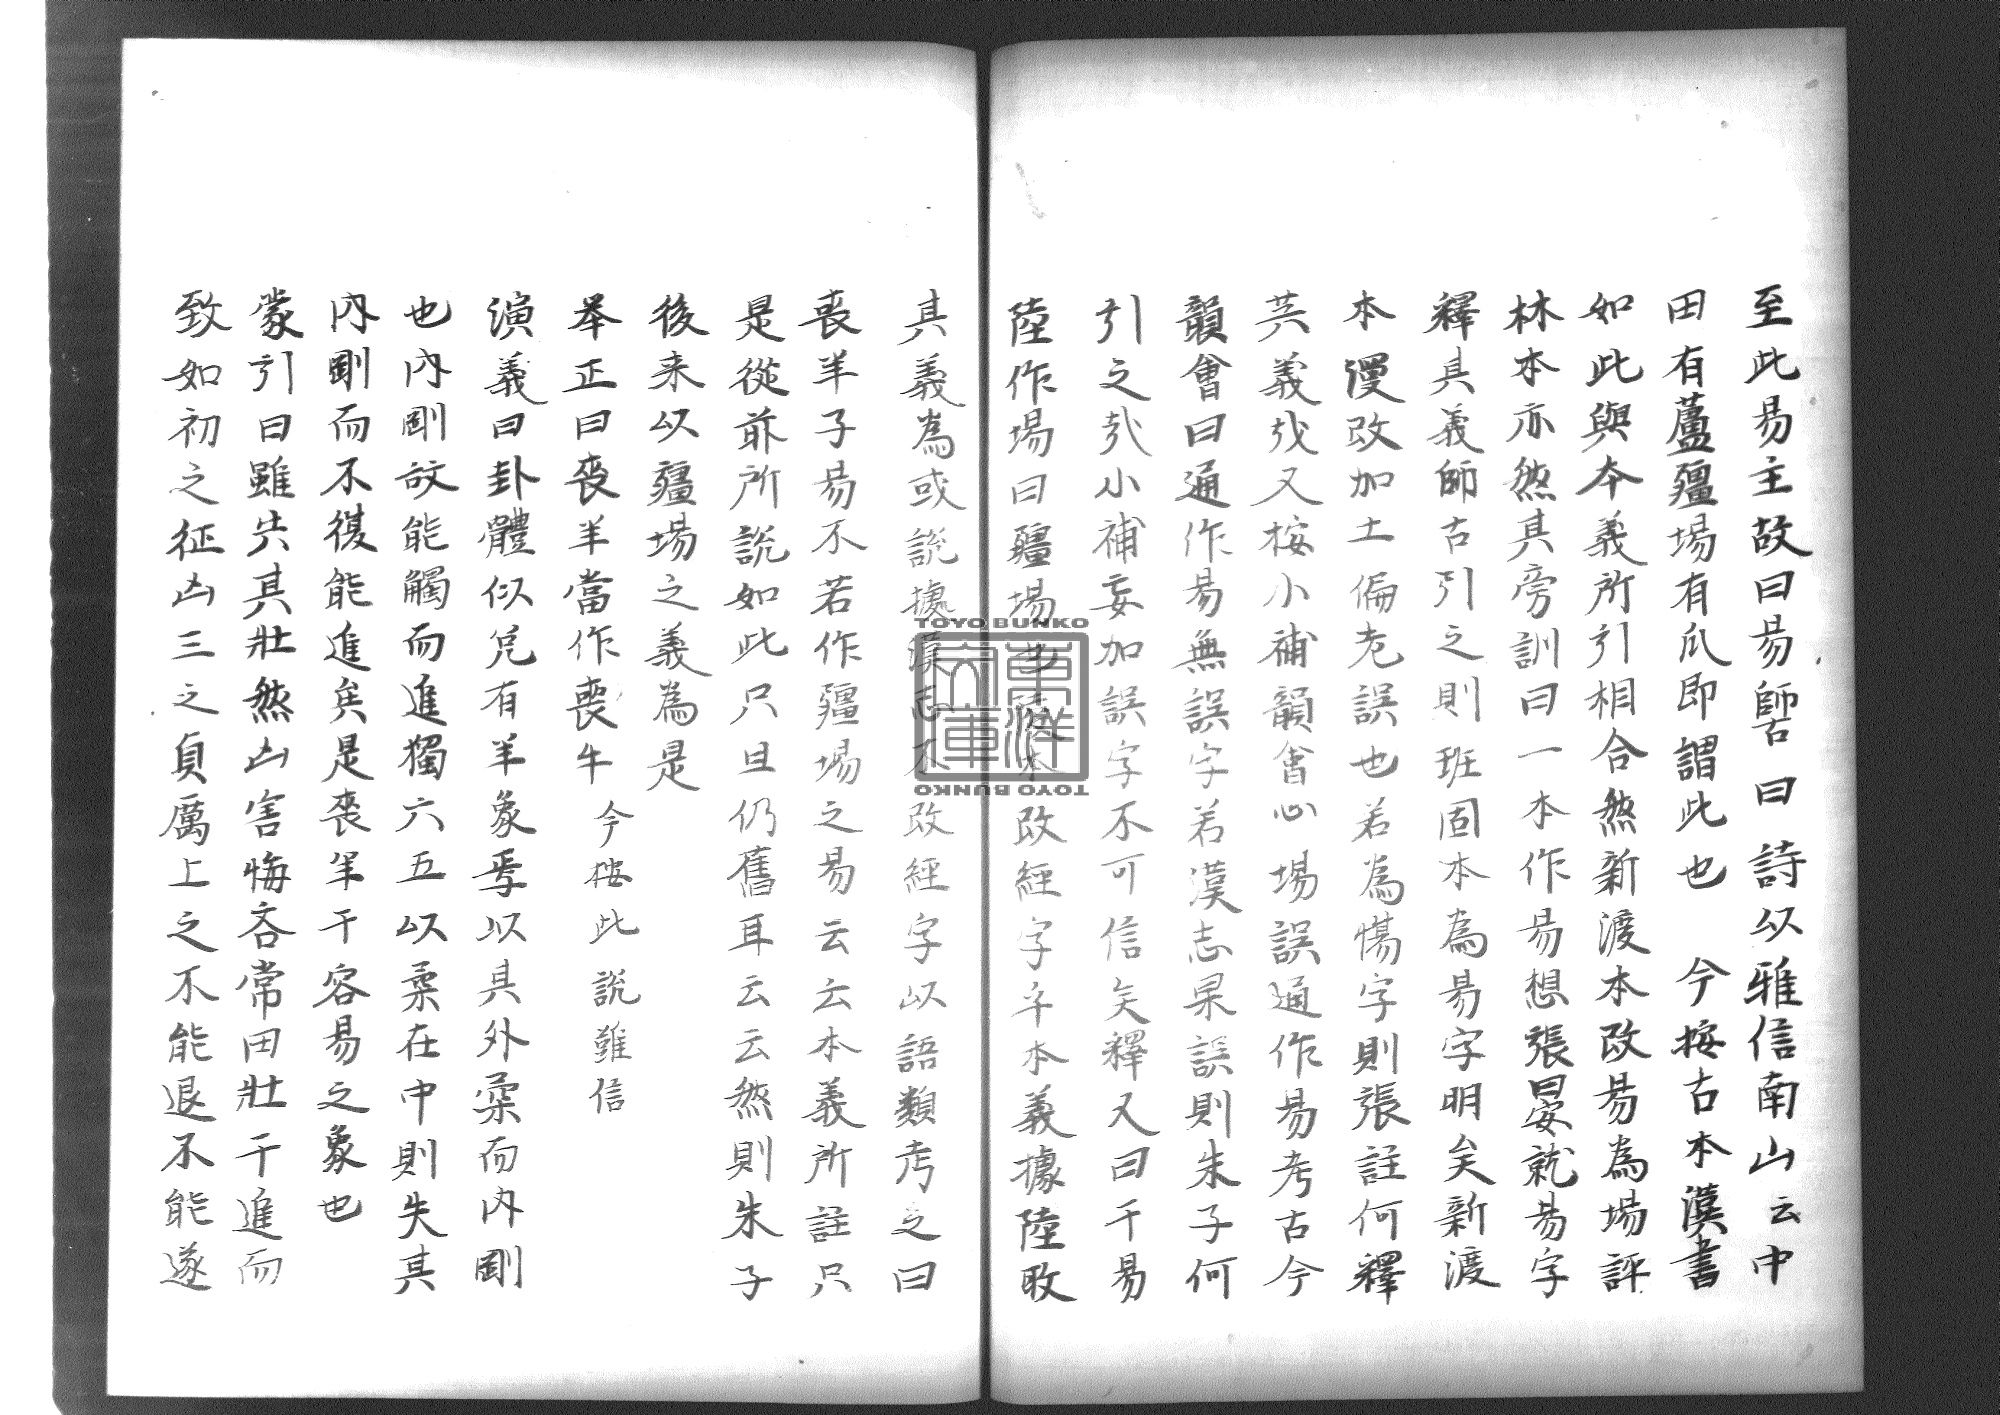 至此易主故曰易師古曰詩以雅信南山云中
田有蘆疆埸有瓜即謂此也 今按古本漢書
如此與本義所引相合然新渡本改易為埸評
林本亦然其旁訓曰一本作易想張晏曰就易字
釋其義師古引之則班固本為易字明矣新渡
本漫改加土偏尤誤也若為愓字則張註何釋
其義哉又按小補韻會埸誤通作易考古今
韻會曰通作易無誤字若漢志果誤則朱子何
引之哉小補妄加誤字不可信矣釋又曰干易
陸作埸曰疆埸也 本改經字本義據陸改
其義為或說據漢志不改經字以語類考之曰
喪羊子易不若作疆埸之易云云本義所註只
是從前所說如此只且仍舊耳云云然則朱子
後来以疆埸之義為是
举正曰喪羊當作喪牛 今按此說難信
演義曰卦體似兌有羊象焉以其外柔而内剛
也内剛故能觸而進獨六五以柔在中則失其
内剛而不復能進矣是喪羊于容易之象也
蒙引曰雖失其壯然山害悔吝常因壯于進而
致如初之征凶三之貞厲上之不能退不能遂